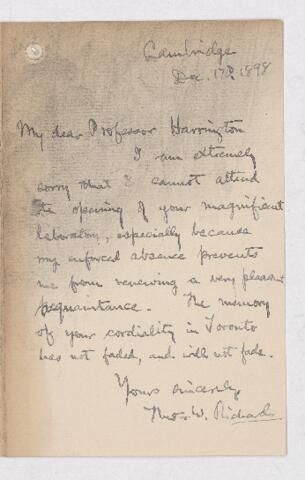 Cambridge
Dec. 17th 1898
My dear Professor Harrington
I am extremely
sorry that I cannot attend
the opening of your magnificent
laboratory, especially because
my enforced absence prevents
me from renewing a very pleasant
acquaintance. The memory
of your cordiality in Toronto
has not faded, and will not fade.
Yours sincerely,
Theo. W. Richards